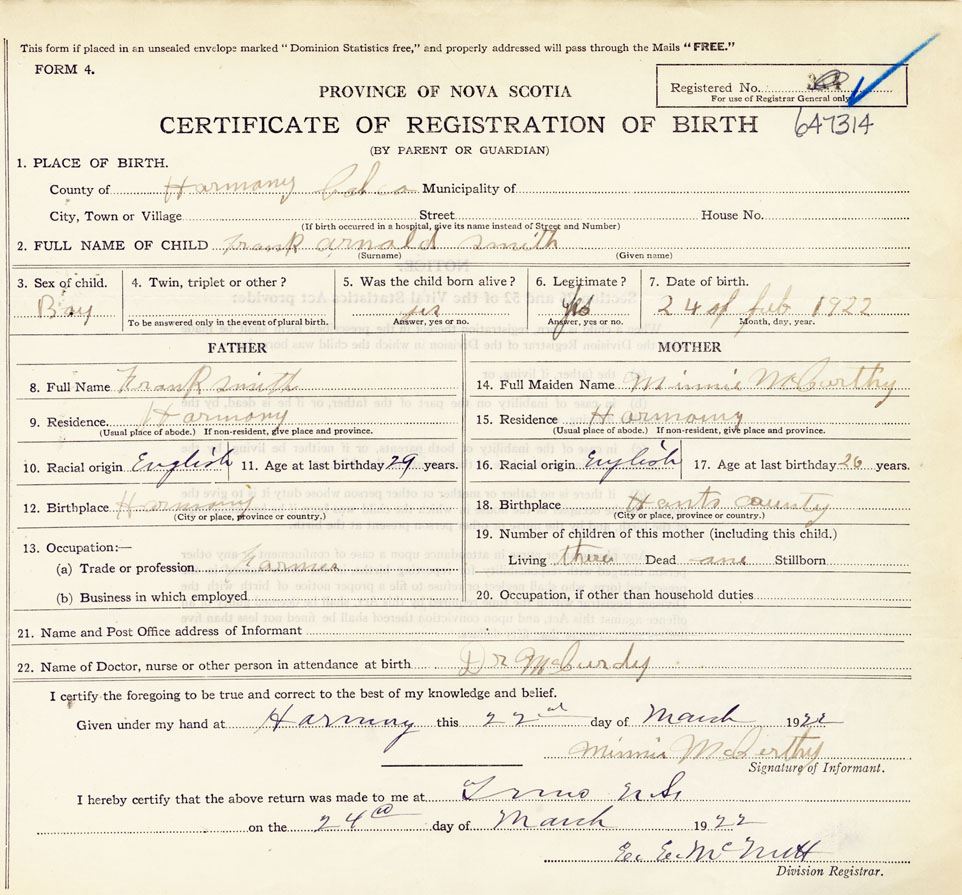 This form if placed in an unsealed envelope marked "Dominion Statistics free," and properly addressed will pass through the Mails "FREE."
FORM 4.
Registered No.
For use of Registrar General only
PROVINCE OF NOVA SCOTIA
CERTIFICATE OF REGISTRATION OF BIRTH 647314
(BY PARENT OR GUARDIAN)
1. PLACE OF BIRTH.
County of Harmony Municipality of
City, Town or Village Street House No.
(If birth occurred in a hospital, give its name instead of Street and Number)
2. FULL NAME OF CHILD Frank arnold smith
(Surname) (Given name)
3. Sex of child. 4. Twin, triplet or other? 5. Was the child born alive? 6. Legitimate? 7. Date of birth.
Boy yes yes 24 of feb 1922
To be answered only in the event of plural birth. Answer, yes or no. Answer, yes or no. Month, day, year.
FATHER MOTHER
8. Full Name Frank smith 14. Full Maiden Name Minnie McCurthy
9. Residence Harmony 15. Residence Harmony
(Usual place of abode.) If non-resident, give place and province. (Usual place of abode.) If non-resident, give place and province.
10. Racial origin English 11. Age at last birthday 29 years. 16. Racial origin English 17. Age at last birthday 26 years.
12. Birthplace Harmony 18. Birthplace Hants county
(City or place, province or country.) (City or place, province or country.)
13. Occupation:— 19. Number of children of this mother (including this child.)
(a) Trade or profession farmer Living three Dead one Stillborn
(b) Business in which employed 20. Occupation, if other than household duties
21. Name and Post Office address of Informant
22. Name of Doctor, nurse or other person in attendance at birth Dr McCurdy
I certify the foregoing to be true and correct to the best of my knowledge and belief.
Given under my hand at Harmony this 22nd day of March 1922
Minnie McCerthy
Signature of Informant.
I hereby certify that the above return was made to me at Truro N.S.
on the 24th day of March 1922
E. E. McNutt
Division Registrar.